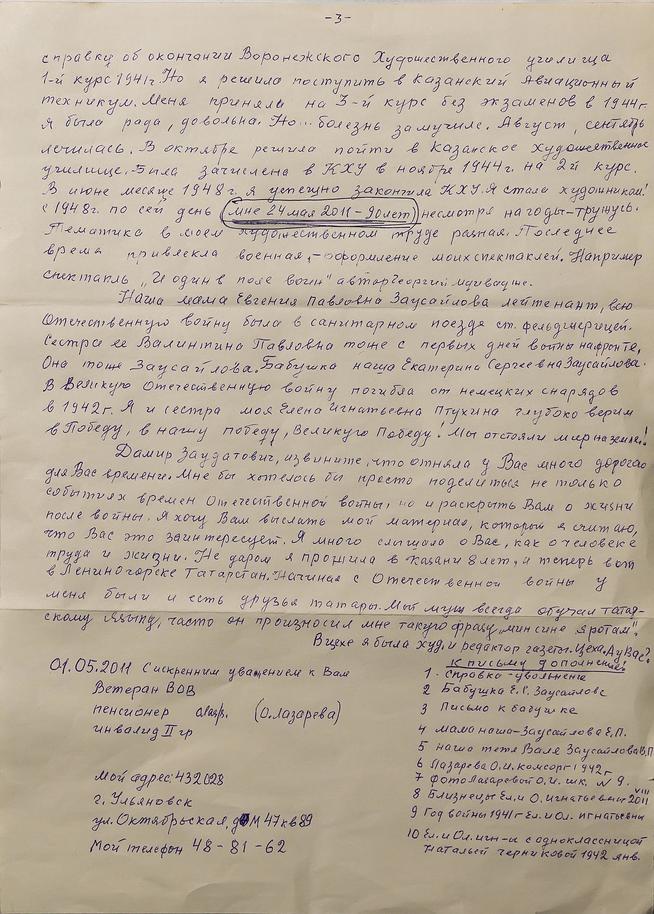 -3-
справку об окончании Воронежского Художественного училища
1-й курс 1941г. Но я решила поступить в Казанский Авиационный
техникум. Меня приняли на 3-й курс без экзаменов в 1944г.
Я была рада, довольна. Но... болезнь замучила. Август, сентябрь
лечилась. В октябре решила пойти в Казанское художественное
училище. Была зачислена в КХУ в ноябре 1944г. на 2й курс.
В июне месяце 1948г. я успешно закончила КХУ. Я стала художником!
с 1948г. по сей день (мне 24 мая 2011 - 90 лет) несмотря на годы - тружусь.
Тематика в моем художественном труде разная. Последнее
время привлекла военная, - оформление моих спектаклей. Например
спектакль „И один в поле воин" автор Георгий
Наша мама Евгения Павловна Заусайлова лейтенант, всю
Отечественную войну была в санитарном поезде ст. фельдшерицей.
Сестра ее Валинтина Павловна тоже с первых дней войны на фронте,
Она тоже Заусайлова. Бабушка наша Екатерина Сергеевна Заусайлова.
В Великую Отечественную войну погибла от немецких снарядов
в 1942г. Я и сестра моя Елена Игнатьевна Птухина глубоко верим
в Победу, в нашу победу, Великую Победу! Мы отстояли мир на земле!
Дамир Заудатович, извините, что отняла у Вас много дорогого
для Вас времени. Мне бы хотелось бы просто поделиться не только
событиях времен Отечественной войны, но и раскрыть Вам о жизни
после войны. Я хочу Вам выслать мой материал, который я считаю,
что Вас это заинтересует. Я много слышала о Вас, как о человеке
труда и жизни. Не даром я прожила в Казани 8 лет, и теперь вот
в Лениногорске Татарстан. Начиная с Отечественной войны у
меня были и есть друзья татары. Мой муж всегда обучал татар-
скому языку, часто он произносил мне такую фразу „мин сине яротам".
В цехе я была худ. и редактор газеты. Цеха. А у Вас?
01.05.2011 С искренним уважением к Вам
Ветеран ВОВ
пенсионер (О. Лазарева)
инвалид II гр
Мой адрес: 432028
г. Ульяновск
ул. Октябрьская, дом 47 кв 89
Мой телефон 48-81-62
К письму дополнение!
1 - справка - увольнение
2 Бабушка Е.С. Заусайлова
3 Письмо к бабушке
4 мама наша - Заусайлова Е.П.
5 наша тетя Валя Заусайлова В.П
6 Лазарева О.И. комсорг 1942г
7 фото Лазаревой О.И. шк. № 9.
8 Близнецы Ел. и О. Игнатьевны VIII 2011
9 Год войны 1941г Ел. и Ол. игнатьевны
10 Ел. и Ол. игн-и с одноклассницой
Натальей Черниковой 1942 янв.